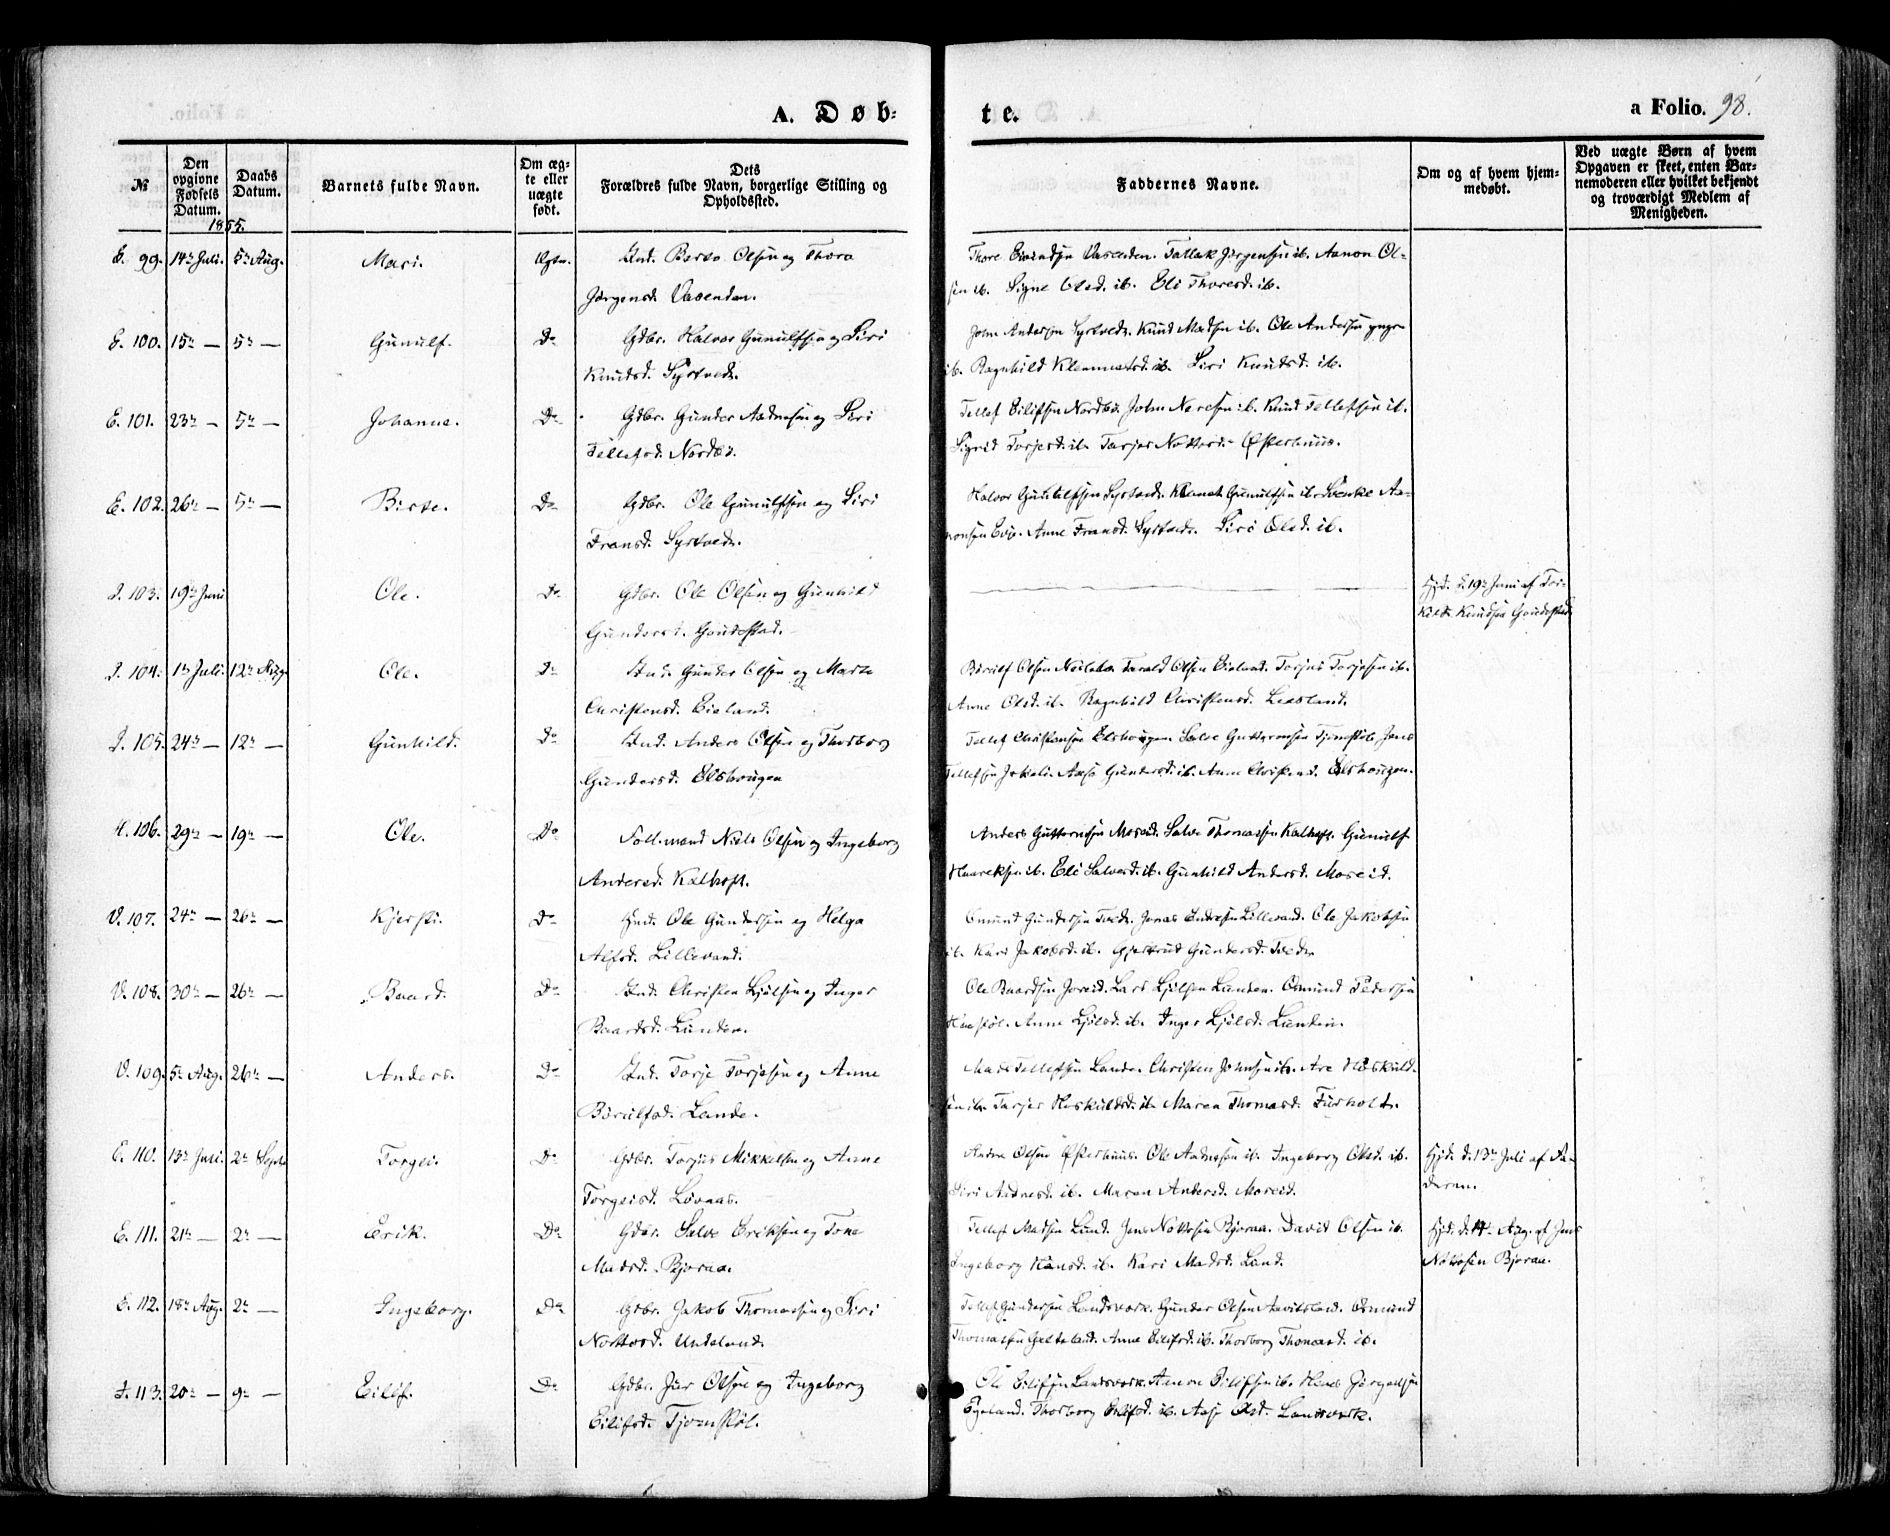 A. Døb-
te.
a Folio. 98.
№
Den opgivne Fødsels Datum.
Daabs Datum.
Barnets fulde Navn.
Om ægte eller uægte født.
Dets Forældres fulde Navn, borgerlige Stilling og Opholdsted.
Faddernes Navne.
Om og af hvem hjemmedøbt.
Ved uægte Børn af hvem Opgaven er skeet, enten Barnemoderen eller hvilket bekjendt og troværdigt Medlem af Menigheden.
1855.
E. 99. 14de Juli. 5te Aug. Mari. Ægte. Ind. Olsen og Thora
Jörgensd. Vasenden.
Thore Vasenden. Tallak Jörgensen ib. Aanon Ol-
sen ib. Signe Olsd. ib. Eli Thoresd. ib.
E. 100. 15de — 5te — Gunulf. Do Gdbr. Halvor Gunulfsen og Siri
Knudsd. Syrtvedt.
John Andersen Syrtvedt. Knud Madsen ib. Ole Andersen yngr
ib. Ragnhild ib. Siri Knudsd. ib.
E. 101. 23de — 5te — Johanne. Do Gdbr. Gunder Aadnesen og Siri
Tellefsd. Nordbö.
Tellef Eilifsen Nordbö. John ib. Knud Tellefsen ib.
Sigrid Torjesd. ib. Tarjer Østerhuus.
E. 102. 26de — 5te — Birte. Do Gdbr. Ole Gunulfsen og Siri
Fransd. Syrtvedt.
Halvor Gunulfsen Syrtvedt. Gunulfsen ib. Aa-
nonsen Evje. Anne Fransd. Syrtvedt. Siri Olsd. ib.
I. 103. 19de Juni Ole. Do Gdbr. Ole Olsen og Gunhild
Gundersd. Goudestad.
Hjd. d. 19de Juni af Tor-
kild Knudsen Goudestad
I. 104. 1ste Juli. 12te Aug. Ole. Do Ind. Gunder Olsen og Marte
Christensd. Eieland.
Olsen Tarald Olsen Eieland. Torjus Torjesen ib.
Anne Olsd. ib. Ragnhild Christensd.
I. 105. 24de — 12te — Gunhild. Do Ind. Anders Olsen og Thorborg
Gundersd. Elshougen
Tellef Christensen Elshougen Salve Guttormsen Jens
Tellefsen Aase Gundersd. ib. Anne Christensd. Elshougen.
H. 106. 29de — 19de — Ole. Do Niels Olsen og Ingeborg
Andersd. Kalhoft.
Anders Guttormsen Moseid. Salve Thomassen Kalhoft. Gunulf
ib. Eli Salvesd. ib. Gunhild Andersd. Moseid.
V. 107. 24de — 26de — Kjersti. Do Ind. Ole Gundersen og Helga
Alfsd. Lillevand.
Osmund Gundersen Tvedt. Jonas Lillevand. Ole Jakobsen
ib. Kari Jakobsd. ib. Gjertrud Gundersd. Tvedt
V. 108. 30te — 26de — Baard. Do Ind. Christen Ljölsen og Inger
Baardsd. Lunden.
Ole Baardsen Joreid. Lars Ljölsen Lunden. Osmund Pedersen
Anne Ljölsd. ib. Inger Ljölsd. Lunden.
V. 109. 5te Aug. 26de — Anders. Do Ind. Torje Torjesen og Anne
Börulfsd. Lande.
Mads Tellefsen Lande. Christen Johnsen ib. Are Höskuld-
sen ib. Tarjer Höskuldsd. ib. Maren Thomasd. Furholt.
E. 110. 13de Juli. 2de Septb. Torgei. Do Gdbr. Torjus Mikkelsen og Anne
Torgeisd. Lövaas.
Olsen Østerhuus. Ole Aadnesen ib. Ingeborg Olsd. ib.
Siri Aadnesd. ib. Maren Andersd. Moseid.
Hjd. d. 13de Juli af Fa-
deren.
E. 111. 21de — 2de — Erik. Do Gdbr. Salve Eriksen og Tone
Madsd. Bjoraa.
Tellef Madsen Lund. Jens Nottosen Bjoraa. David Olsen ib.
Ingeborg Hansd. ib. Kari Madsd. Lund.
Hjd. d. 14de Aug. af Jens
Nottosen Bjoraa.
E. 112. 18de Aug. 2de — Ingeborg. Do Gdbr. Jakob Thomassen og Siri
Nottosd. Undeland.
Tellef Gundersen Landsverk. Gunder Olsen Aavitsland. Osmund
Thomassen Galteland. Anne Eilifsd. ib. Thorborg Thomasd. ib.
I. 113. 20de — 9de — Eilif. Do Gdbr. Olsen og Ingeborg
Eilifsd. Tjomstöl.
Ole Eilifsen Landsverk. Aanon Eilifsen ib. Hans Jörgensen
Egeland. Thorborg Eilifsd. ib. Aase Olsd. Landsverk.